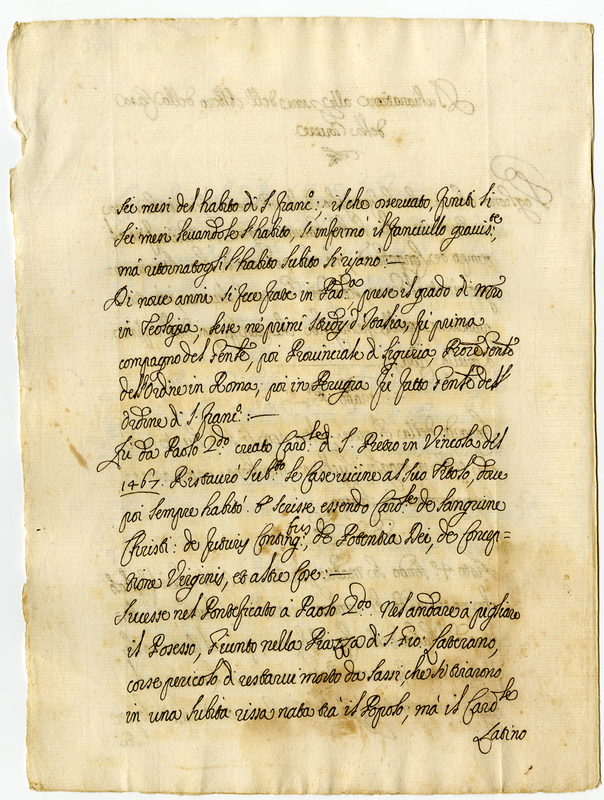 sei mesi del habito di S. Franc.º; il che osservato, finiti li
sei mesi levandole l'habito, s'infermò il fanciullo gravis.te,
mà ritornatogli l'habito subito si risanò.—
Di nove anni si fece frate in Pad.oa, prese il grado di Mro
in Teologia. Lesse ne primi Studij d'Italia, fù prima
compagno del Gente, poi Provinciale di Liguria, Gente
dell'Ordine in Roma, poi in Perugia fù fatto Gente dell'
Ordine di S. Franc.º:—
Fù da Paolo 2.do creato Card.le di S. Pietro in Vincola del
1467. Ristaurò sub.to le Case vicine al suo Titolo, dove
poi sempre habitò. E scrisse essendo Card.le de Sanguine
Christi: de futuris Conting.tibus, de Potentia Dei, de Concep=
tione Virginis, et altre Cose.—
Sucesse nel Pontificato à Paolo 2.do. Nel andare à pigliare
il Posesso, Giunto nella Piazza di S. Gio: Laterano,
corse pericolo di restarvi morto da sassi, che si tirarono
in una subita rissa nata trà il Popolo; mà il Card.le
Latino